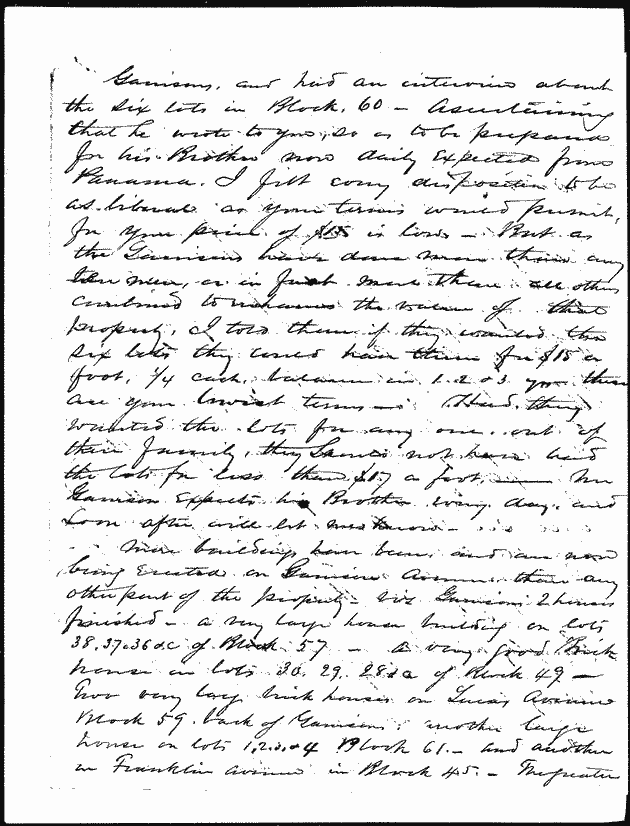 Garrisons, and had an interview about
the six lots in Block. 60 - Ascertaining
that he wrote to you, so as to be prepared
for his Brother now daily Expected from
Panama. I felt every disposition to be
as liberal as your terms would permit,
for your price of $15 is low - But as
the Garrisons have done more than any
ten men, or in fact more than all others
combined to enhance the value of that
property, I told them if they wanted the
six lots they could have them for $15 a
foot, 1/4 cash, balance in 1. 2 & 3 yrs these
are your lowest terms - Had they
wanted the lots for any one out of
their family, they could not have had
the lots for less than $17 a foot, - Mr
Garrison Expects his Brother every day. and
soon after will let me know -
More buildings have been, and are now
being Erected on Garrison Avenue, than any
other part of the property - viz Garrisons 2 houses
finished - a very large house building on lots
38. 37. 36 &c of Block 57 - a very good Brick
house on lots 30. 29. 28 &c of Block 49 -
two very large brick houses on Lucas Avenue
Block 59. back of Garrisons; another large
house on lots 1. 2. 3. & 4 Block 61. - and another
on Franklin avenue in Block 45. - The greater